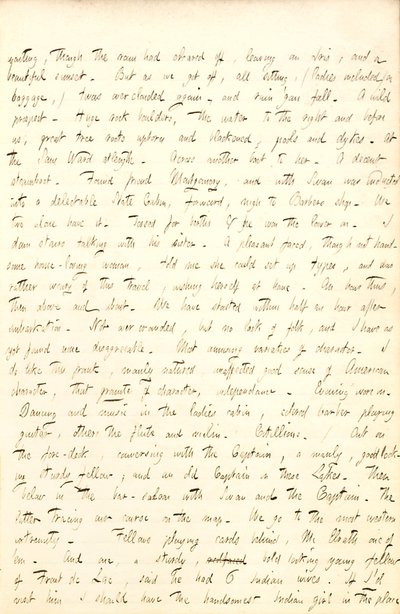 waiting, though the rain had cleared off, leaving an Iris, and a
beautiful sunset. But as we got off, all sitting, (ladies included, on
baggage,) twas over clouded again, and rain gan fall. A wild
prospect. Huge rock boulders, the water to the right and before
us, great tree roots upturn and blackened, pools and dykes. At
the Sam Ward at length. Across another boat to her. A decent
steamboat. Found friend Montgomery, and with Swan was inducted
into a delectable State Cabin, forward, nigh to Barbers shop. We
two alone have it. Tossed for berths & he won the lower one. I
down stairs talking with his sister. A pleasant faced, though not hand-
some home-loving woman, told me she could set up types, and was
rather weary of this travel, wishing herself at home. An hour thus,
then above and about. We have started within half an hour after
embarkation. Not over crowded, but no lack of folk, and I have as
yet found none disagreeable. Most amusing varieties of character. I
do like the frank, manly natured, unaffected good sense of American
character, that granite of character, independance. Evening wore on.
Dancing and music in the Ladies cabin, colored barber playing
guitar, others the flute and violin. Cotillions. / Out on
the fore-deck, conversing with the Captain, a manly, good look-
ing sturdy fellow; and an old Captain on these Lakes. Then
below in the bar-saloon with Swan and the Captain. The
latter tracing our course on the map. We go to the most western
extremity. Fellows playing cards behind, Mc Elrath one of
'em. And one, a sturdy, looking young fellow
of Fron du Lac, said he had 6 Indian wives. If I'd
visit him I should have the handsomest Indian girl in the place